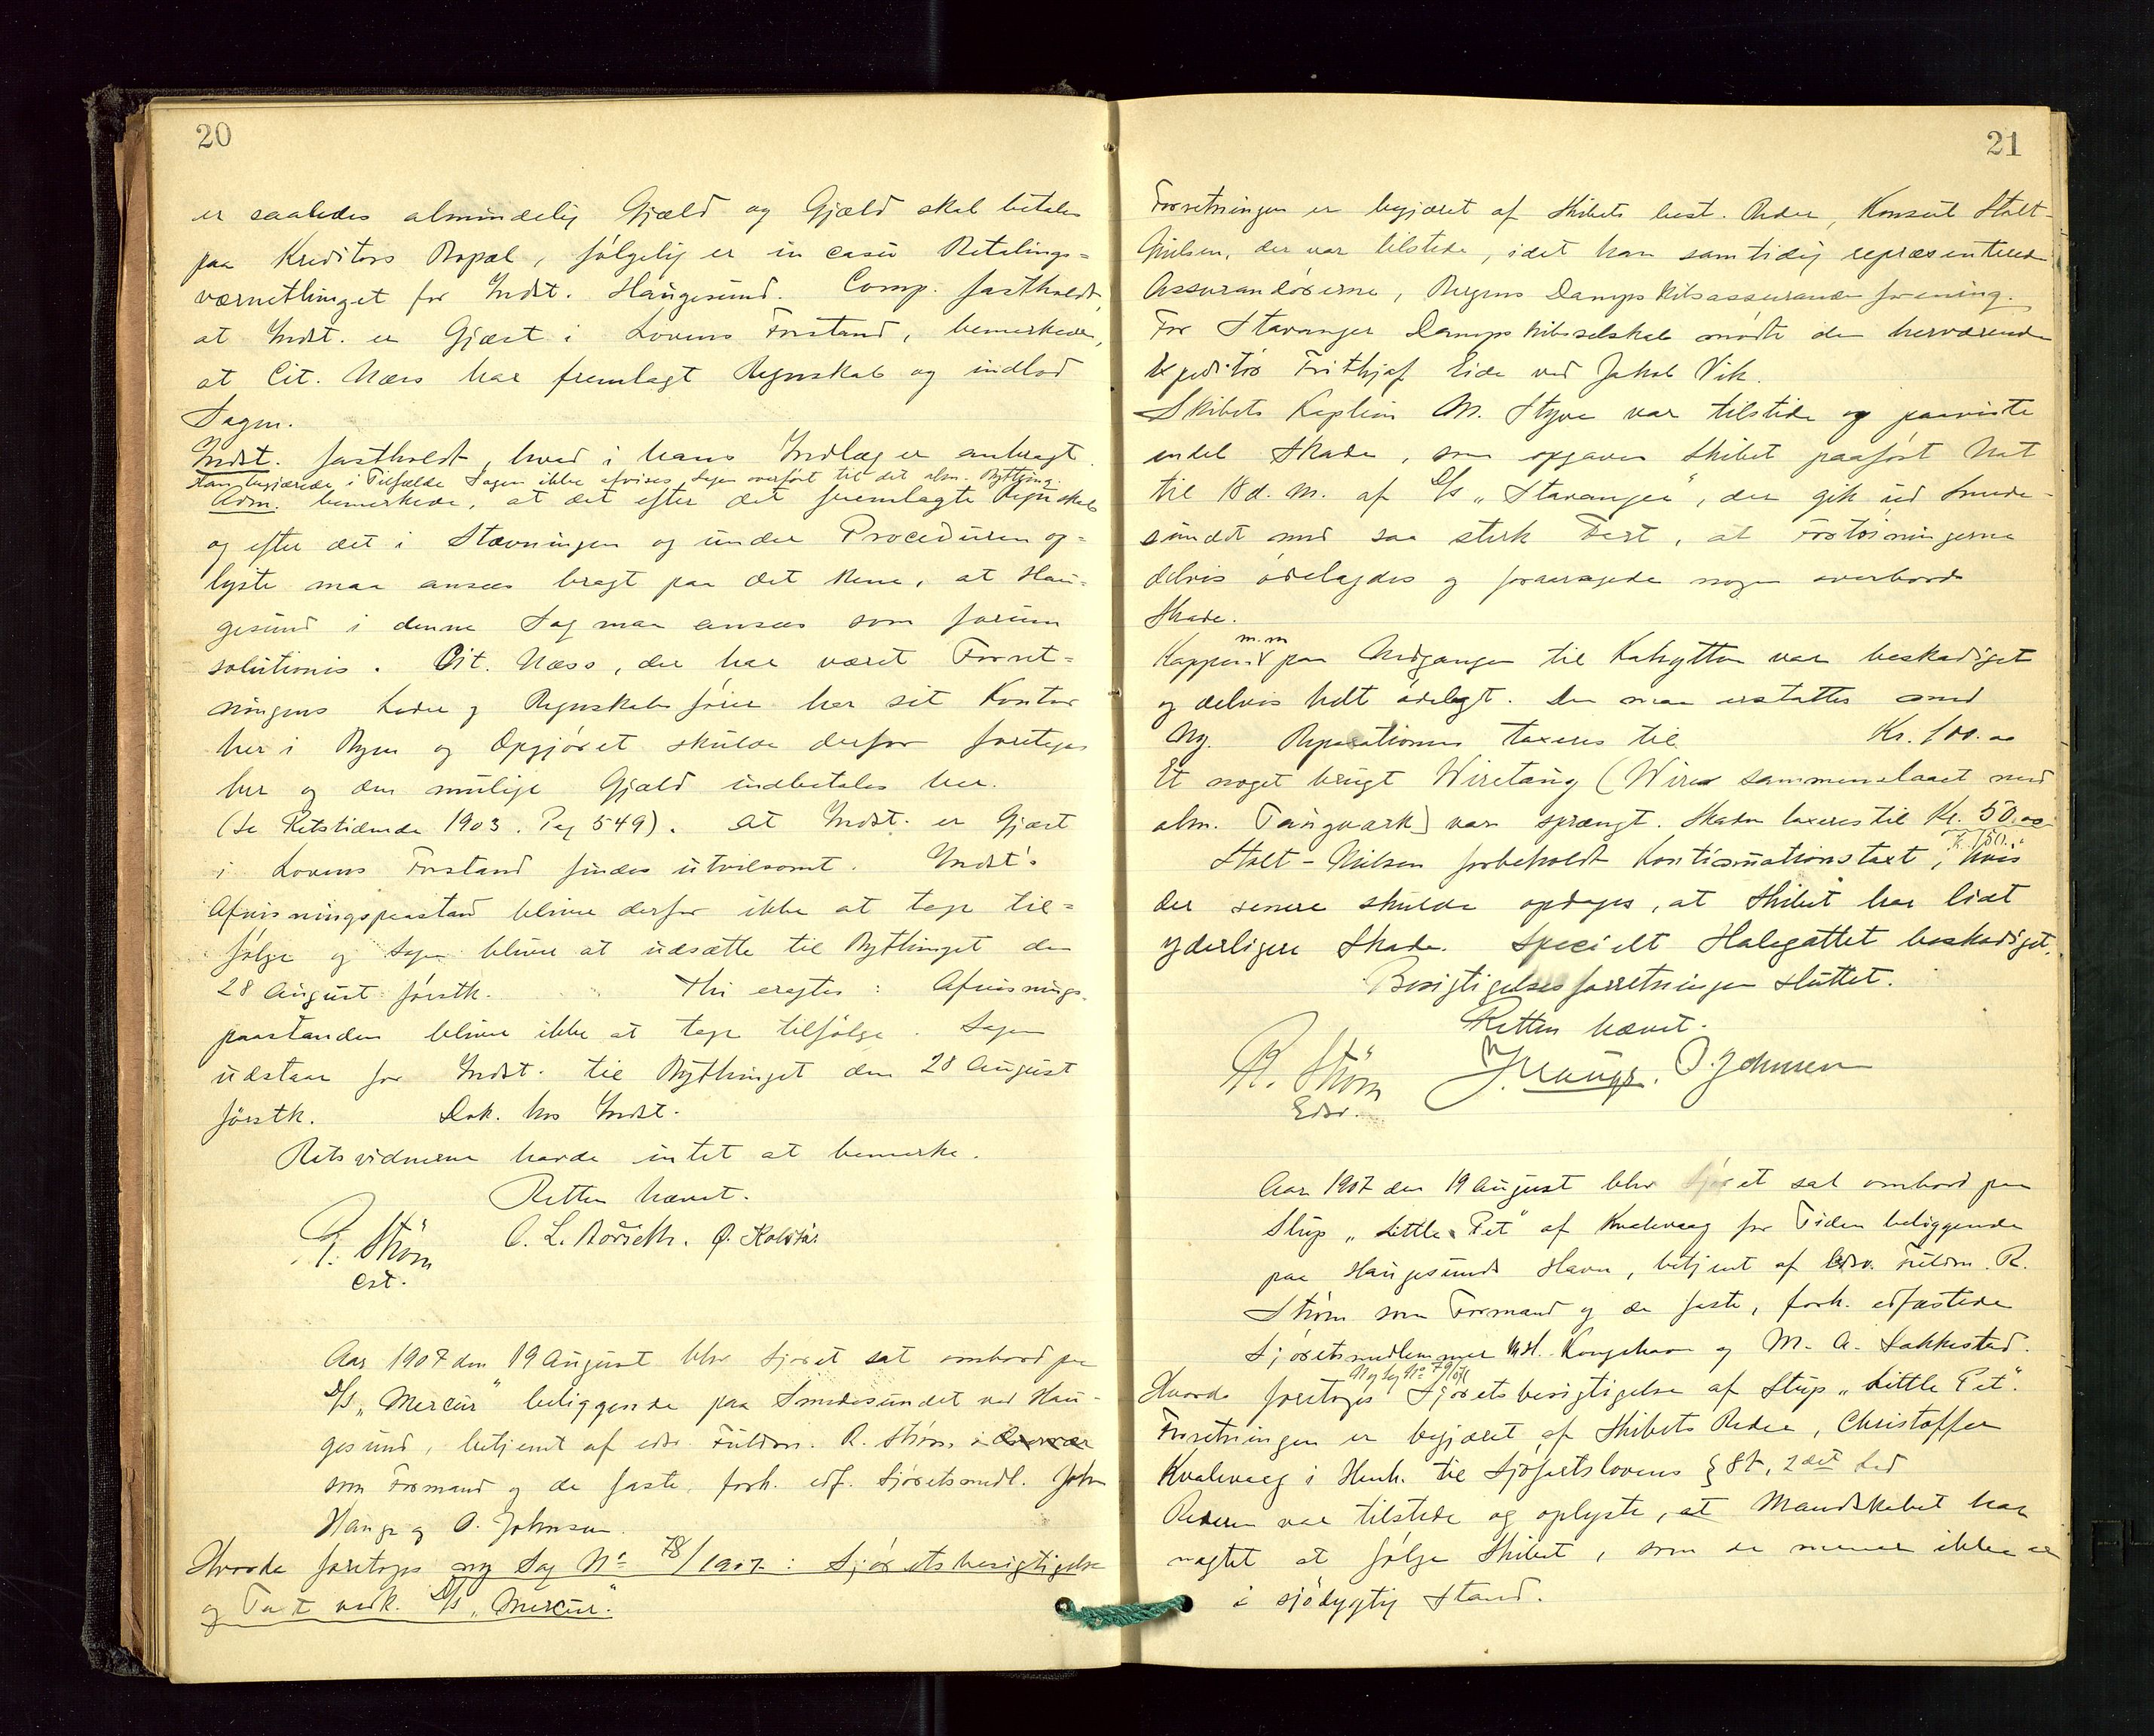 20
er saaledes almindelig Gjæld og Gjæld skal betales
paa Kreditors Bopæl, følgelig er in casu Betalings=
værnethinget for Indst. Haugesund. Comp. fastholdt,
at Indst. er Gjæst i Lovens Forstand, bemerkede,
at Cit. Næss har fremlagt Regnskab og indlod
Sagen.
Indst. fastholdt, hvad i hans Indlæg er anbragt.
Han begjærede i Tilfælde Sagen ikke afvises Sagen overført til det alm. Bything.
Adm. bemerkede, at det efter det fremlagte Regnskab
og efter det i Stævningen og under Proceduren op=
lyste maa ansees bragt paa det Rene, at Hau=
gesund i denne Sag maa ansees som forum
solutionis. Cit. Næss, der har været Forret=
ningens Leder og Regnskabsfører har sit Kontor
her i Byen og Opgjøret skulde derfor foretages
her og den mulige Gjæld indbetales her.
(Se Retstidende 1903. Pag 549). At Indst. er Gjæst
i Lovens Forstand findes utvilsomt. Indst's
Afvisningspaastand bliver derfor ikke at tage til=
følge og Sagen bliver at udsætte til Bythinget den
28 August førstk. Thi eragtes: Afvisnings-
paastanden bliver ikke at tage tilfølge. Sagen
udstaar for Indst. til Bythinget den 28 August
førstk. Dok. hos Indst.
Retsvidnerne havde intet at bemerke.
Retten hævet.
R. Strøm
cst.
O. L. Rørseth. O. Kolstø.
Aar 1907 den 19 August blev Sjøret sat ombord paa
D/S "Mercur" beliggende paa Smedesundet ved Hau-
gesund, betjent af edsv. Fuldm. R. Strøm
som Formand og de faste, forh. edf. Sjøretsmedl. John
Hauge og O. Johnsen.
Hvorda foretoges ny Sag No 78/1907: Sjøretsbesigtigelse
og Taxt vedk. D/S "Mercur".
21
Forretningen er begjæret af Skibets best. Reder, Konsul Stolt-
Nielsen, der var tilstede, idet han samtidig repræsenterede
Assurandørerne, Bergens Dampskibsassuranceforening.
For Stavanger Dampskibsselskab mødte den herværende
Expeditør Frithjof Eide ved Jakob Vik.
Skibets Kaptein M. Styve var tilstede og paaviste
endel Skade, som opgaves Skibet paaført Nat
til 18 d. M. af D/S "Stavanger", der gik ud Smede-
sundet med saa sterk Fart, at Fortøiningerne
delvis ødelagdes og foraarsagede nogen overbords
Skade.
m. m
Kappen paa Nedgangen til Kahytten var beskadiget
og delvis helt ødelagt. Den maa erstattes med
Ny. Reparationen taxeres til Kr. 100.00
Et noget brugt Wiretaug (Wire sammenslaaet med
alm. Taugværk) var sprængt. Skaden taxeres til Kr. 50.00
Kr. 150.
Stolt-Nielsen forbeholdt Kontinuationstaxt, hvis
der senere skulde opdages, at Skibet har lidt
yderligere Skade. Specielt Halegattet beskadiget.
Besigtigelsesforretningen sluttet.
Retten hævet.
R. Strøm
Edsv.
J. Hauge. O. Johnsen
Aar 1907 den 19 August blev Sjøret sat ombord paa
Slup "Little Pet" af Kvalevaag for Tiden beliggende
paa Haugesunds Havn, betjent af Edsv. Fuldm. R.
Strøm som Formand og de faste, forh. edfæstede
Sjøretsmedlemmer Mdl. Kongshavn og M. A. Lakkestad.
Ny Sag No 79/07
Hvorda foretoges Sjøretsbesigtigelse af Slup "Little Pet".
Forretningen er begjæret af Skibets Reder, Christoffer
Kvalevaag i Henh. til Sjøfartslovens § 87, 2det Led
Rederen var tilstede og oplyste, at Mandskabet har
nægtet at følge Skibet, som de mener ikke er
i sjødygtig Stand.